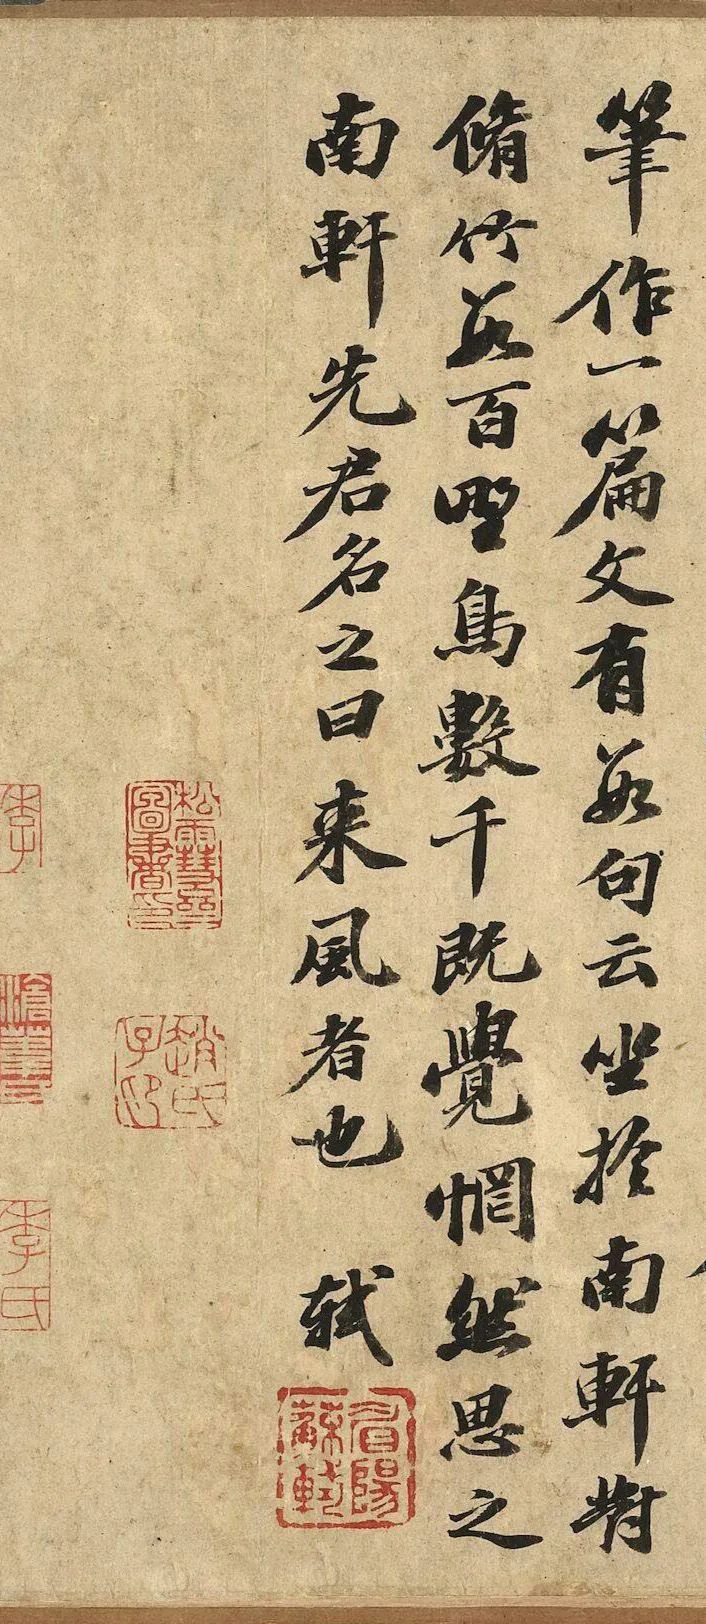 筆作一篇文有數句云坐於南軒對
脩竹數百野鳥數千既覺惘然思之
南軒先君名之曰来風者也 軾
眉陽
蘇軾
松雪齋
圖書印
趙氏
子印
李
李氏